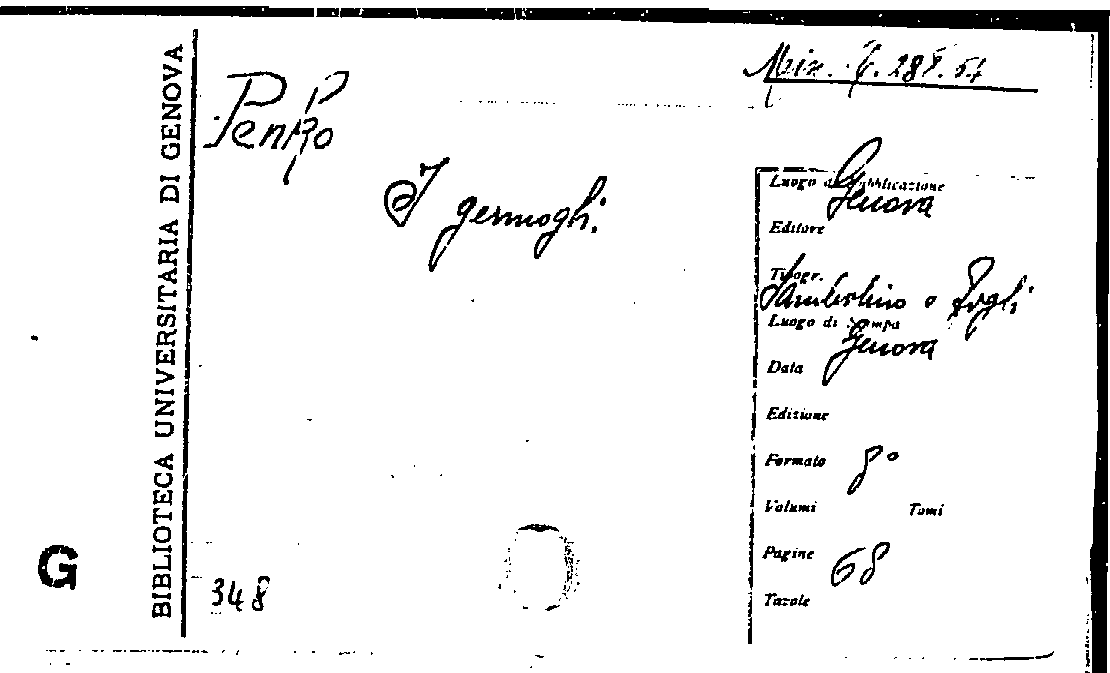 BIBLIOTECA UNIVERSITARIA DI GENOVA
G
Misc. 288.54
Penko P
I germogli.
Luogo di Pubblicazione
Genova
Editore
Tipogr.
Lambertino e Fogli
Luogo di Stampa
Genova
Data
Edizione
Formato 8°
Volumi Tomi
Pagine 68
Tavole
348